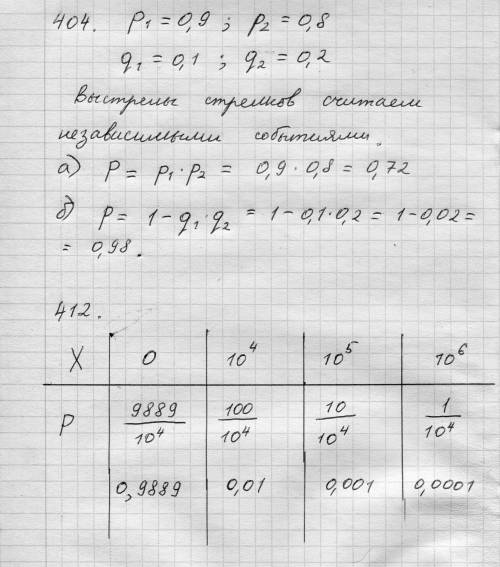 404. p₁ = 0,9 ; p₂ = 0,8
q₁ = 0,1 ; q₂ = 0,2
Выстрелы стрелков считаем
независимыми событиями.
а) P = p₁ · p₂ = 0,9 · 0,8 = 0,72
б) P = 1 - q₁ · q₂ = 1 - 0,1 · 0,2 = 1 - 0,02 =
= 0,98.
412.
X 0 10⁴ 10⁵ 10⁶
P 9889/10⁴ 100/10⁴ 10/10⁴ 1/10⁴
0,9889 0,01 0,001 0,0001